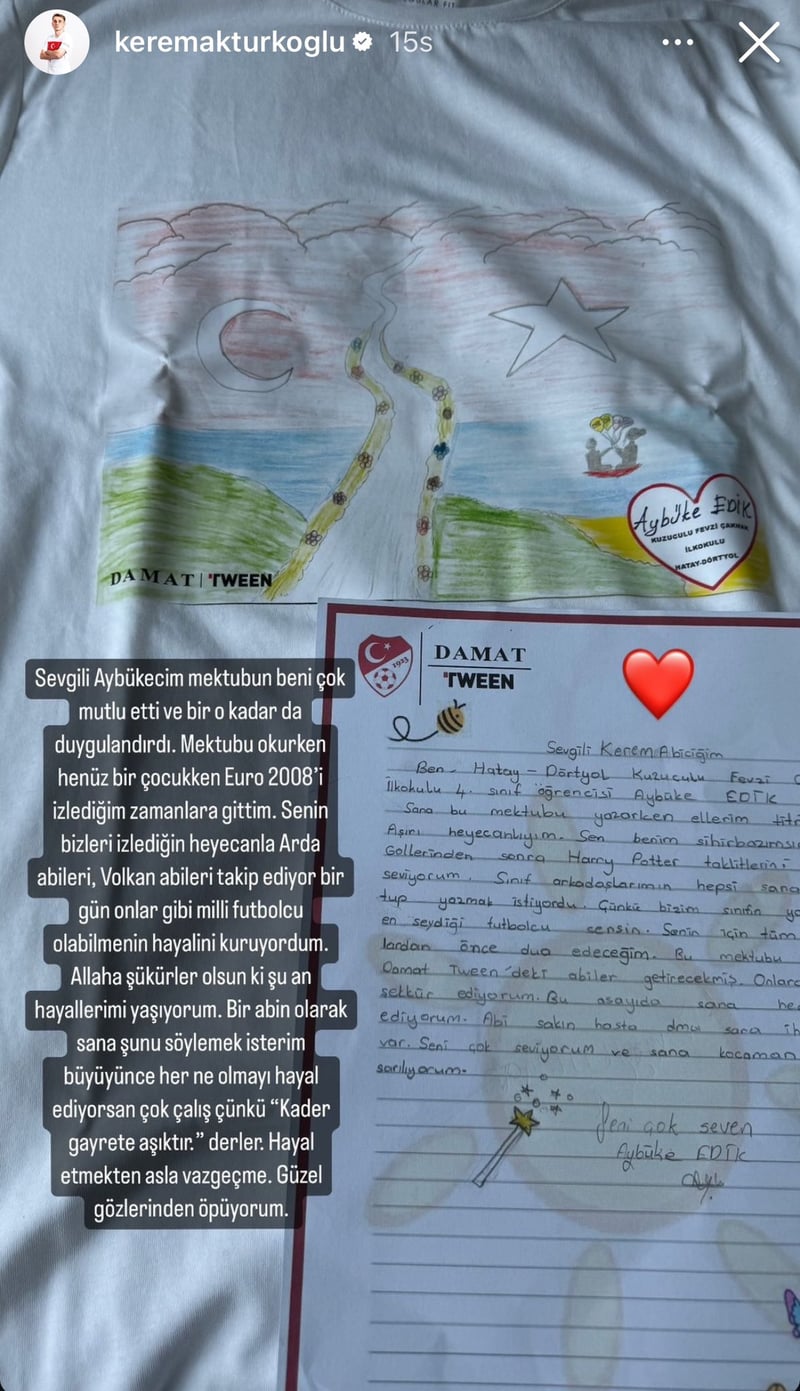 keremakturkoglu 15s
Aybüke EDİK
KUZUCULU FEVZİ ÇAKMAK
İLKOKULU
HATAY-DÖRTYOL
DAMAT | TWEEN
1923
DAMAT
TWEEN
Sevgili Aybükecim mektubun beni çok
mutlu etti ve bir o kadar da
duygulandırdı. Mektubu okurken
henüz bir çocukken Euro 2008'i
izlediğim zamanlara gittim. Senin
bizleri izlediğin heyecanla Arda
abileri, Volkan abileri takip ediyor bir
gün onlar gibi milli futbolcu
olabilmenin hayalini kuruyordum.
Allaha şükürler olsun ki şu an
hayallerimi yaşıyorum. Bir abin olarak
sana şunu söylemek isterim
büyüyünce her ne olmayı hayal
ediyorsan çok çalış çünkü “Kader
gayrete aşıktır.” derler. Hayal
etmekten asla vazgeçme. Güzel
gözlerinden öpüyorum.
Sevgili Kerem Abiciğim
Ben Hatay - Dörtyol Kuzuculu Fevzi
İlkokulu 4. sınıf öğrencisi Aybüke EDİK
Sana bu mektubu yazarken ellerim
Aşırı heyecanlıyım. Sen benim
Gollerinden sonra Harry Potter taklitlerini
seviyorum. Sınıf arkadaşlarımın hepsi sana
tup yazmak istiyordu. Çünkü bizim sınıfın
en sevdiği futbolcu sensin. Senin için tüm
lardan önce dua edeceğim. Bu mektubu
Damat Tween'deki abiler getirecekmiş.
ediyorum. Bu sana
ediyorum. Abi sakın hasta olma sana
var. Seni çok seviyorum ve sana kocaman
sarılıyorum.
Seni çok seven
Aybüke EDİK